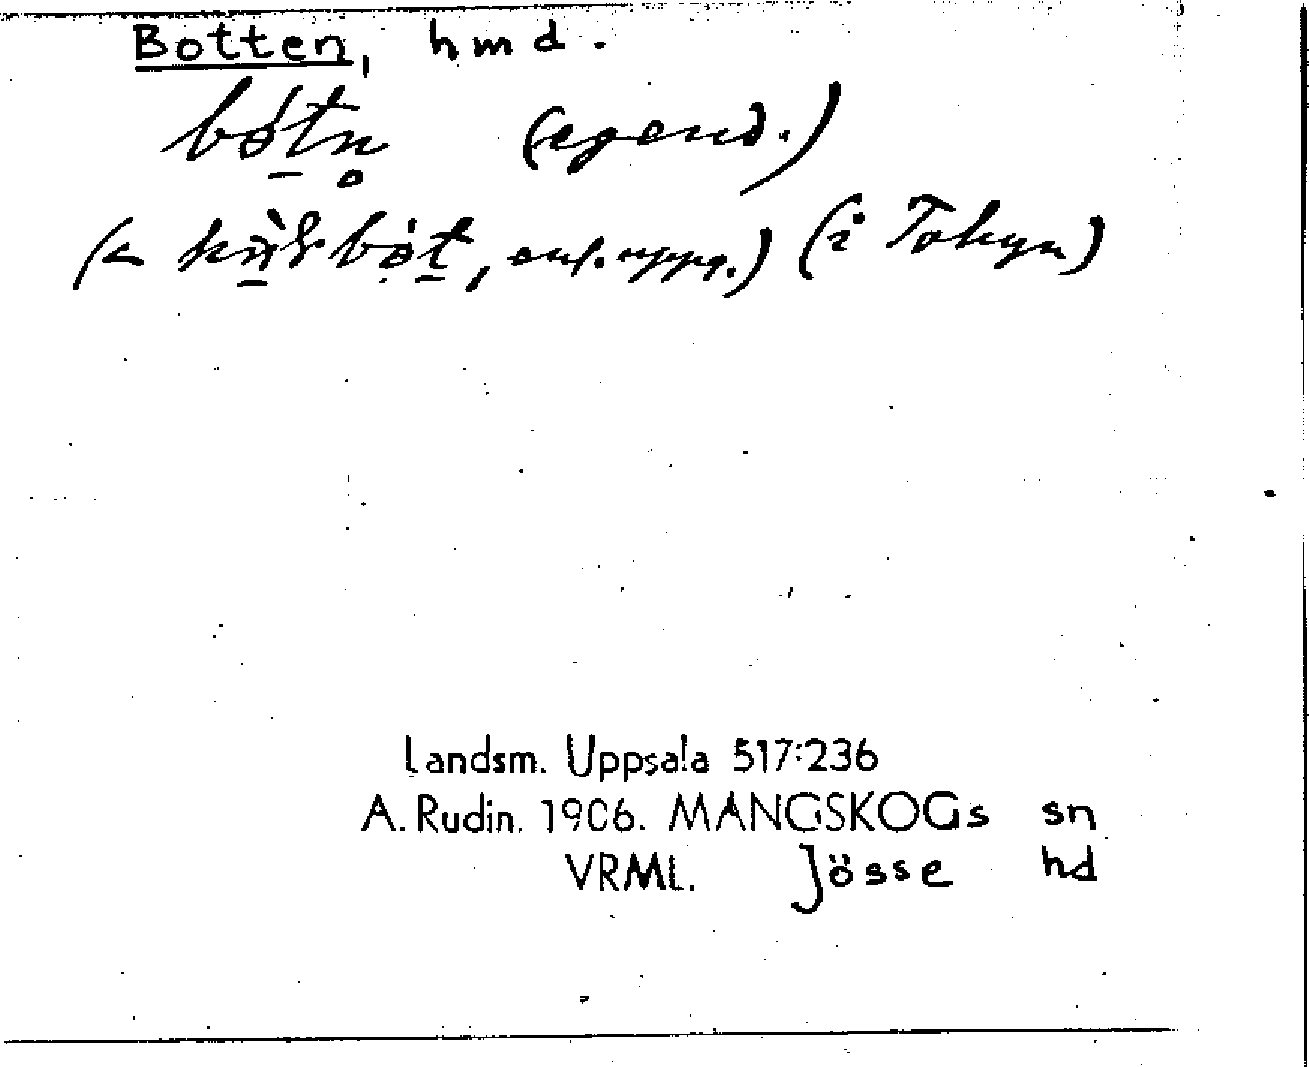 Botten, hmd.
bótn̥ (egend.)
(< , enl. uppg.) (i Tokyn)
Landsm. Uppsala 517:236
A. Rudin. 1906. MANGSKOGs sn
VRML. Jösse hd